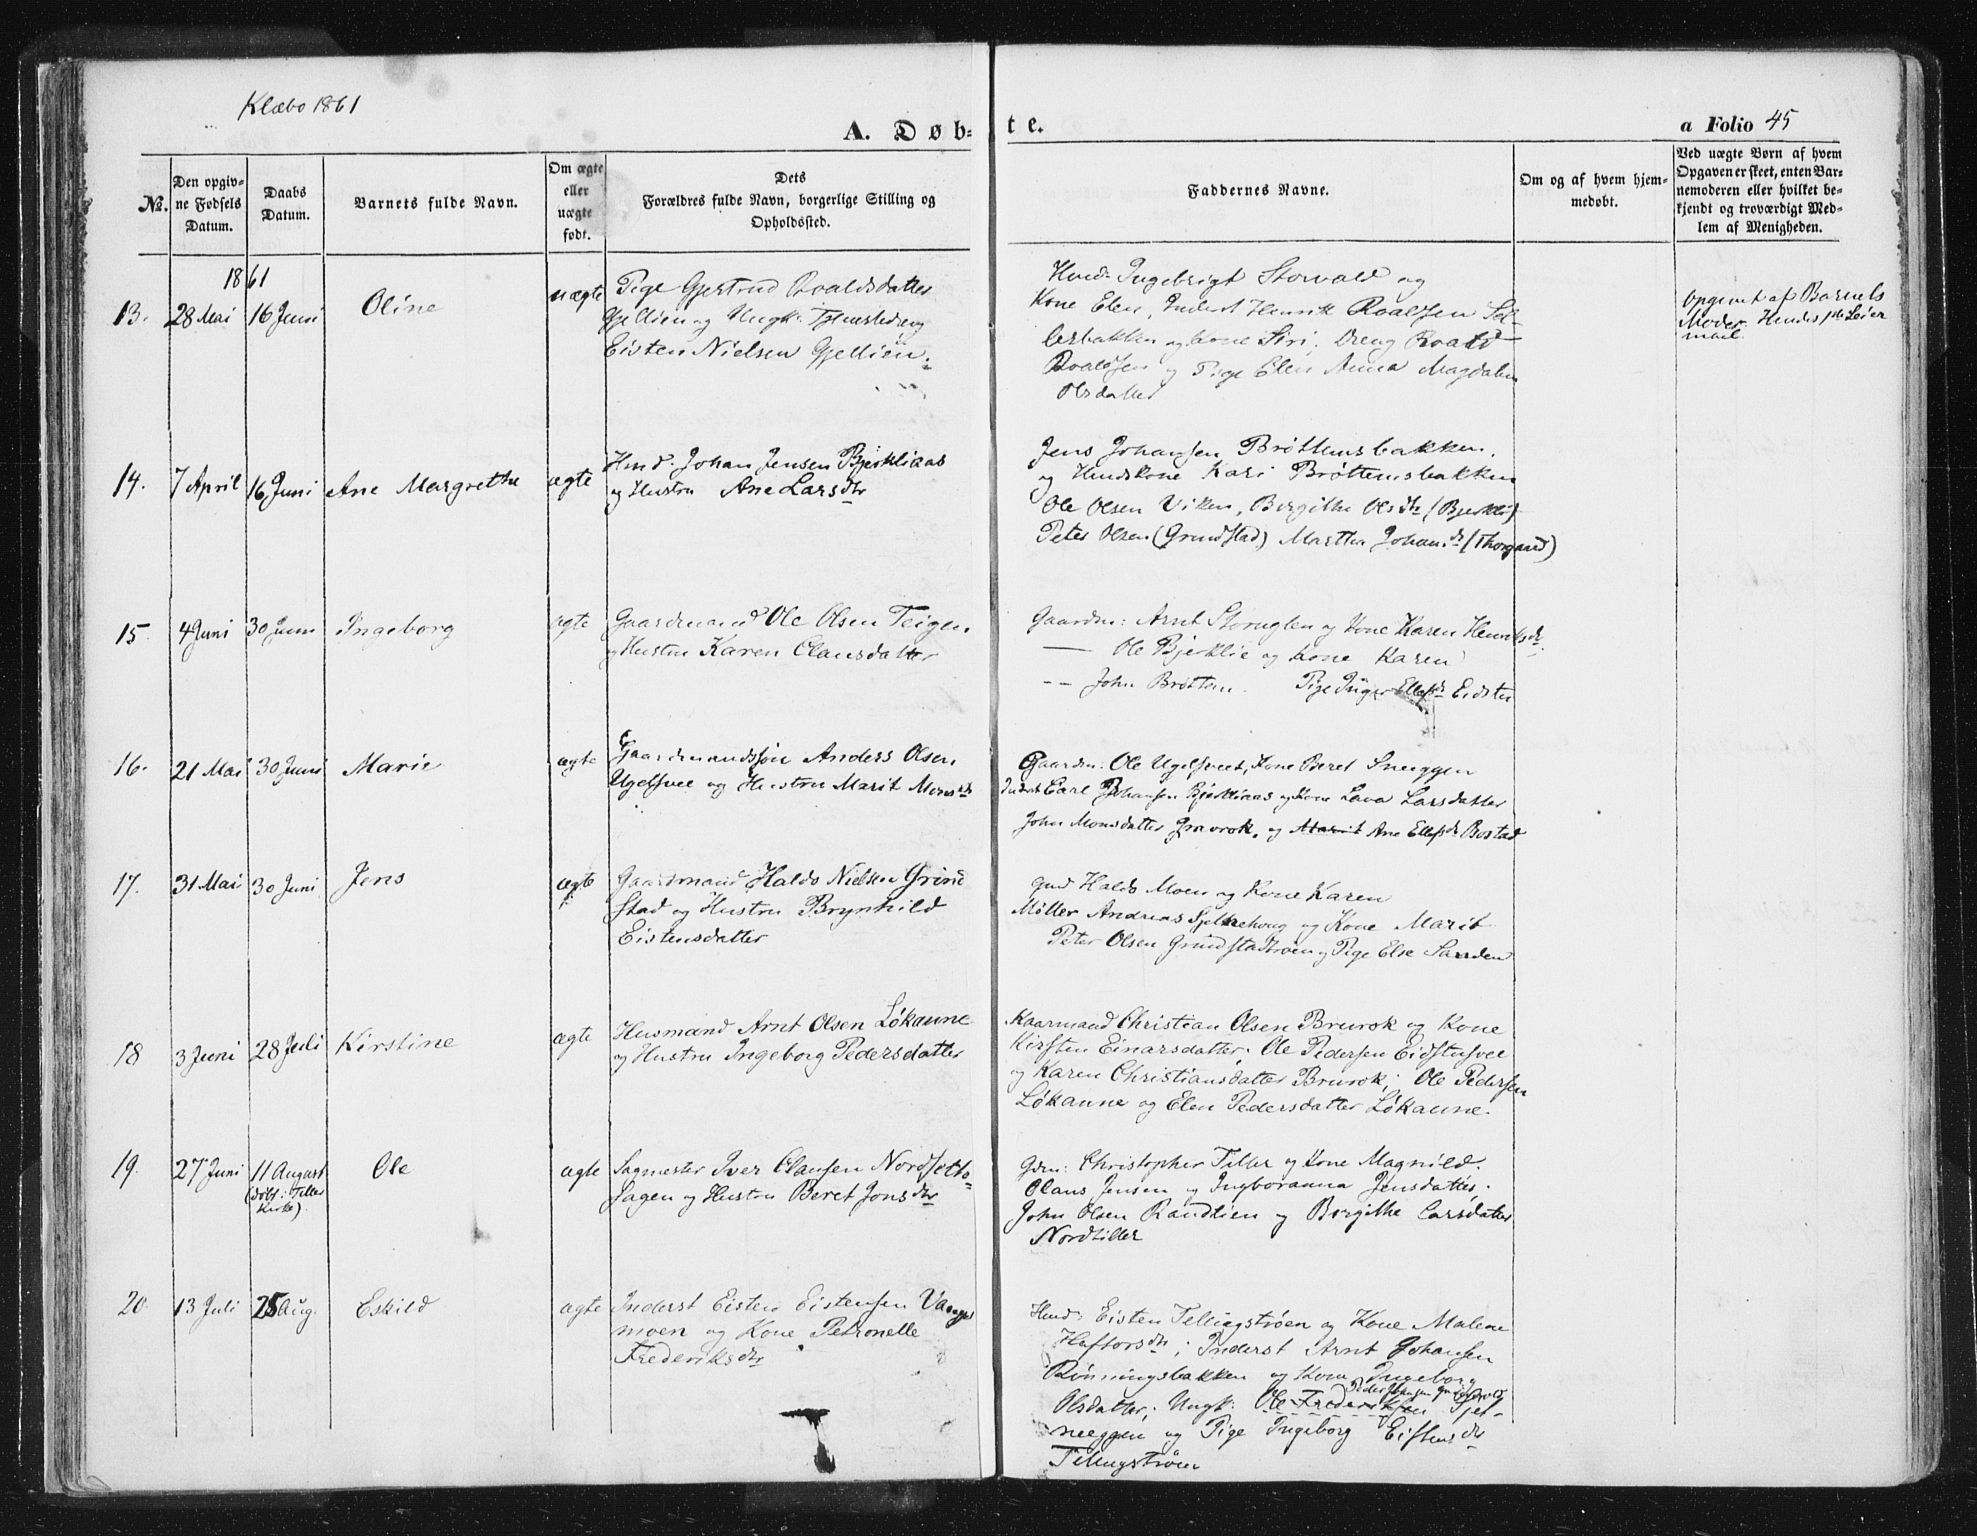 Klæbo 1861
A. Døb-
te.
a Folio 45
No.
Den opgiv-
ne Fødsels
Datum.
Daabs
Datum.
Barnets fulde Navn.
Om ægte
eller
uægte
født.
Dets
Forældres fulde Navn, borgerlige Stilling og
Opholdssted.
Faddernes Navne.
Om og af hvem hjem-
medøbt.
Ved uægte Børn af hvem
Opgaven er skeet, enten Bar-
nemoderen eller hvilket be-
kjendt og troværdigt Med-
lem af Menigheden.
1861
13. 28 Mai 16 Juni Oline uægte
Pige Gjertrud Roaldsdatter
Gjellien og Ungk: Tjenestedreng
Eisten Nielsen Gjellien.
Hmd: Ingebrigt Storvald og
Kone Elen, Inderst Henrik Roalsen Sel-
lesbakken og Kone Siri, Dreng Roald
Roaldsen og Pige Elen Anna Magdalena
Olsdatter
Opgivet af Barnets
Moder. Hendes 1ste Leier
maal.
14. 7 April 16 Juni Ane Margrethe ægte
Hmd. Johan Jensen Bjerkliaas
og Hustru Ane Larsdtr
Jens Johansen Brøttemsbakken,
og Hmdskone Kari Brøttemsbakken
Ole Olsen Viken, Birgithe Olsdtr (Bjerkli)
Peter Olsen (Grundstad) Martha Johansdr (Thorgaard)
15. 4 Juni 30 Juni Ingeborg ægte
Gaardmand Ole Olsen Teigen
og Hustru Karen Clausdatter
Gaardm: Arnt Storuglen og Kone Karen Henriksdr.
— Ole Bjerklie og Kone Karen
-- John Brøttem. Pige Inger Ellefsdr Eidsten
16. 21 Mai 30 Juni Marie ægte
Gaardmandssøn Anders Olsen
Ugelsvee og Hustru Marit Monsdr
Gaardm: Ole Ugelsveet, Kone Beret Sneeggen
Inderst Carl Johansen Bjerkliaas og Kone Lava Larsdatter
John Monsdatter Gravrok, og Marit Ane Ellefsdr Bostad
17. 31 Mai 30 Juni Jens ægte
Gaardmand Haldo Nielsen Grind
stad og Hustru Brynhild
Eistensdatter
Gmd Haldo Moen og Kone Karen
Møller Andreas Sjetnehoug og Kone Marit
Peter Olsen Grindstadtrøen og Pige Else Sanden
18 3 Juni 28 Juli Kirstine ægte
Husmand Arnt Olsen Løkaune
og Hustru Ingeborg Pedersdatter
Gaarmand Christian Olsen Brurok og Kone
Kirsten Einarsdatter; Ole Pedersen Eidstusvee
og Karen Christiansdatter Brurok; Ole Pedersen
Løkaune og Elen Pedersdatter Løkaune.
19. 27 Juni 11 August
(døbt i Tiller
Kirke)
Ole ægte
Sagmester Iver Clausen Nordseth-
sagen og Hustru Beret Jonsdtr
Gdm: Christopher Tiller og Kone Magnild.
Olaus Jensen og Ingboranna Jensdatter.
John Olsen Randlien og Birgithe Larsdatter
Nordtiller
20. 13 Juli 25 Aug. Eskild ægte
Inderst Eisten Eistensen Vangs
moen og Kone Petronelle
Frederiksdtr
Hmd: Eisten Tellugstrøen og Kone Malene
Haftorsdtr; Inderst Arnt Johansen
Rønningsbakken og Kone Ingeborg
Olsdatter; Ungk: Ole Frederiksen Sjet-
neeggen og Pige Ingeborg Eistensdr
Tellugstrøen